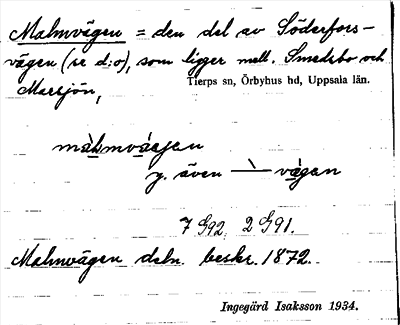 Malmvägen = den del av Söderfors-
vägen (se d:o), som ligger mell. Smedsbo och
Tierps sn, Örbyhus hd, Uppsala län.
Marsjön,
màlmvä́gen
y. även —— vä́gan
7 G92. 2 G91.
Malmvägen deln. beskr. 1872.
Ingegärd Isaksson 1934.